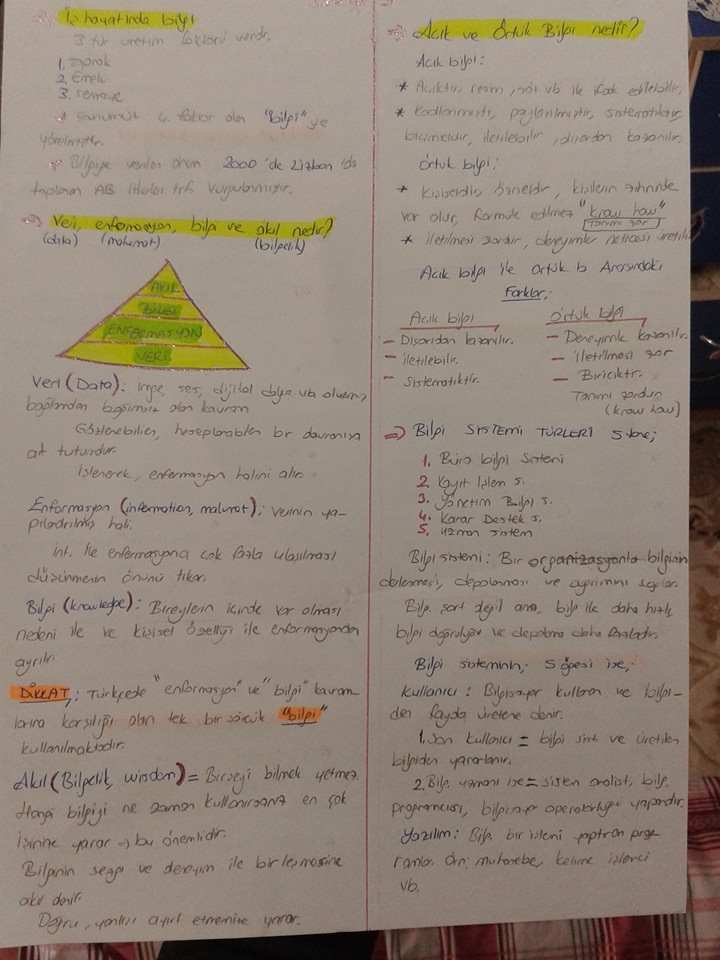 İş hayatında bilgi
3 tür üretim faktörü vardır.
1. Toprak
2. Emek
3. Sermaye
Günümüz 4. faktör olan "bilgi" ye
yönelmiştir.
Bilgiye verilen önem 2000'de Lizbon'da
toplanan AB liderler trf. vurgulanmıştır.
Veri, enformasyon, bilgi ve akıl nedir?
(data) (malumat) (bilgelik)
AKIL
BİLGİ
ENFORMASYON
VERİ
Veri (Data): İmge, ses, dijital dalga vb oluşan,
bağlamdan bağımsız olan kavram
Gözlenebilen, hesaplanabilen bir davranışa
ait tutumdur.
İşlenerek, enformasyon halini alır.
Enformasyon (information, malumat): Verinin ya-
pılandırılmış hali.
İnt. ile enformasyona çok fazla ulaşılması
düşünmenin önünü tıkar.
Bilgi (knowledge): Bireylerin içinde var olması
nedeni ile ve kişisel özelliği ile enformasyondan
ayrılır.
DİKKAT: Türkçede "enformasyon" ve "bilgi" kavram-
larına karşılığı olan tek bir sözcük "bilgi"
kullanılmaktadır.
Akıl (Bilgelik, wisdom) = Birşeyi bilmek yetmez.
Hangi bilgiyi ne zaman kullanırsanız en çok
işinine yarar → bu önemlidir.
Bilginin sezgi ve deneyim ile birleşmesine
akıl denir.
Doğru, yanlışı ayırt etmemize yarar.
Açık ve Örtük Bilgi nedir?
Açık bilgi:
* Açıktır, resim, not vb ile ifade edilebilir.
* Kodlanmıştır, paylaşılmıştır, sistematiktir,
biçimseldir, iletilebilir, dışardan kazanılır.
Örtük bilgi:
* Kişiseldir, özneldir, kişilerin zihninde
var olur, formüle edilmez "know how"
Tanımı zor
* İletilmesi zordur, deneyimler neticesi üretilir
Açık bilgi ile Örtük b Arasındaki
Farklar;
Açık bilgi Örtük bilgi
— Dışarıdan kazanılır. — Deneyimle kazanılır.
— İletilebilir. — İletilmesi zor
— Sistematiktir. — Biriciktir.
Tanımı zordur.
(know how)
⇒ Bilgi SİSTEMİ TÜRLERİ 5 tane;
1. Büro bilgi Sistemi
2. Kayıt İşlem s.
3. Yönetim Bilgi s.
4. Karar Destek s.
5. Uzman sistem
Bilgi sistemi: Bir organizasyonla bilginin
derlenmesi, depolanması ve ayrımını sağlar.
Bilg. şart değil ama, bilg ile daha hızlı
bilgi doğruluğu ve depolama daha fazladır.
Bilgi sisteminin, 5 öğesi ise;
Kullanıcı: Bilgisayar kullanan ve bilgi-
den fayda üretene denir.
1. Son kullanıcı = bilgi sist ve üretilen
bilgiden yararlanır.
2. Bilg. uzmanı ise = sistem analist, bilg.
programcısı, bilgisayar operatörlüğü yapandır.
Yazılım: Bilg. bir işlemi yaptıran prog-
ramlar. Örn; muhasebe, kelime işlemci
vb.